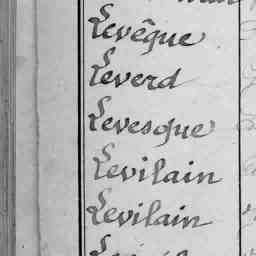 Levêque
Leverd
Levesque
Levilain
Levilain